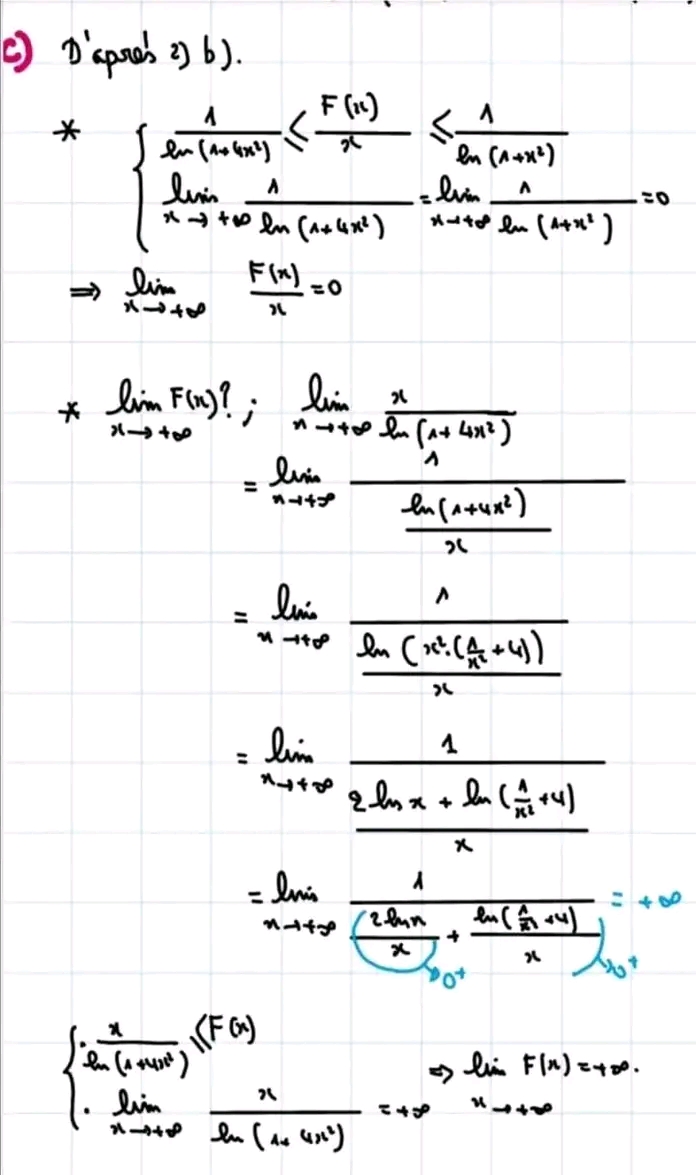 c) D'après 2) b).
* { 1/ln(1+4x²) ≤ F(x)/x ≤ 1/ln(1+x²)
lim x→+∞ 1/ln(1+4x²) = lim x→+∞ 1/ln(1+x²) = 0
⇒ lim x→+∞ F(x)/x = 0
* lim x→+∞ F(x)? ; lim x→+∞ x/ln(1+4x²)
= lim x→+∞ 1/(ln(1+4x²)/x)
= lim x→+∞ 1/(ln(x².(1/x²+4))/x)
= lim x→+∞ 1/((2 ln x + ln(1/x²+4))/x)
= lim x→+∞ 1/(2 ln x/x + ln(1/x²+4)/x) = +∞
→0⁺ →0⁺
{ . x/ln(1+4x²) ≤ F(x)
. lim x→+∞ x/ln(1+4x²) = +∞ ⇒ lim x→+∞ F(x) = +∞.